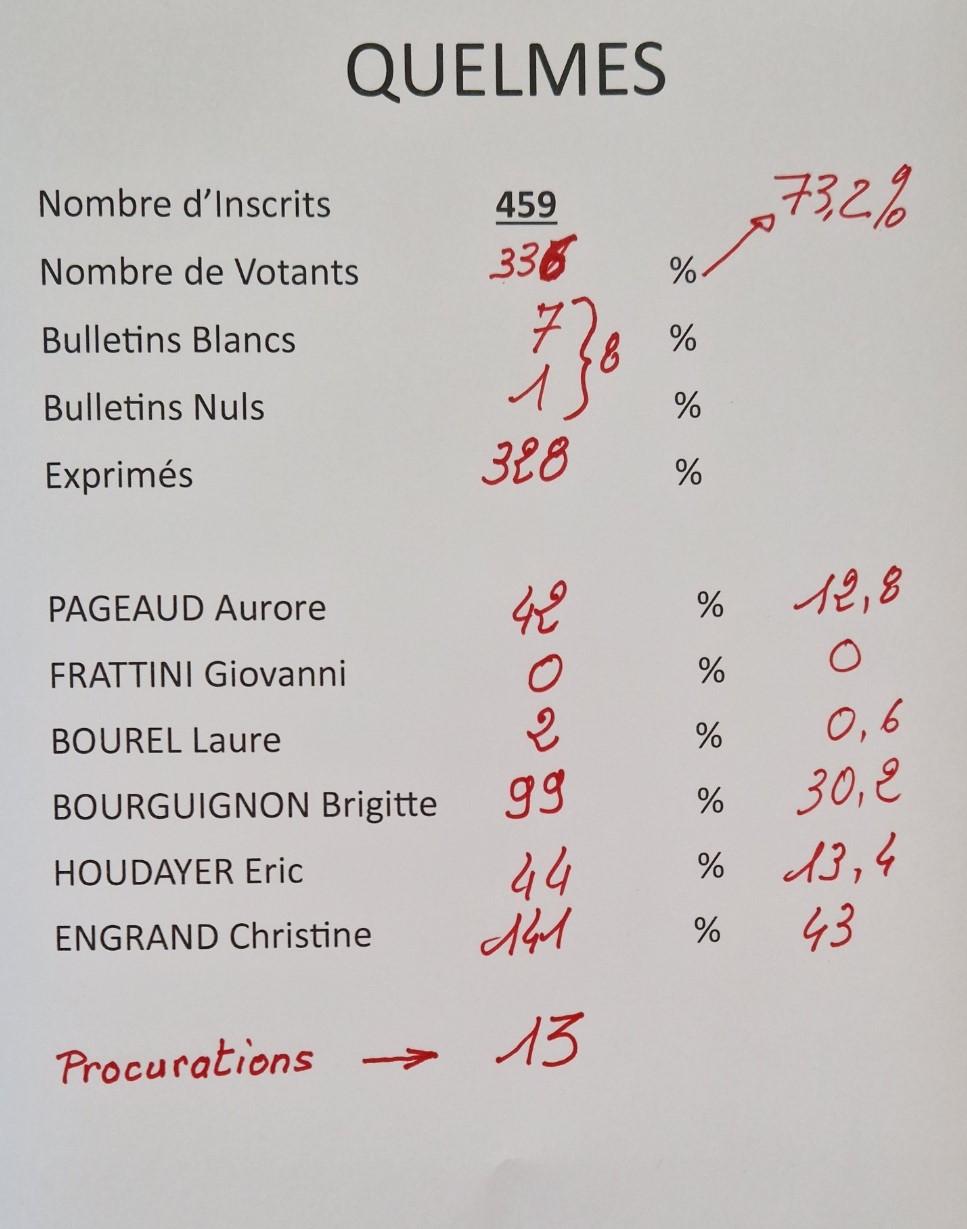 QUELMES
73,2%
Nombre d'Inscrits 459
Nombre de Votants 336 %
Bulletins Blancs 7 %
8
Bulletins Nuls 1 %
Exprimés 328 %
PAGEAUD Aurore 42 % 12,8
FRATTINI Giovanni 0 % 0
BOUREL Laure 2 % 0,6
BOURGUIGNON Brigitte 99 % 30,2
HOUDAYER Eric 44 % 13,4
ENGRAND Christine 141 % 43
Procurations → 13